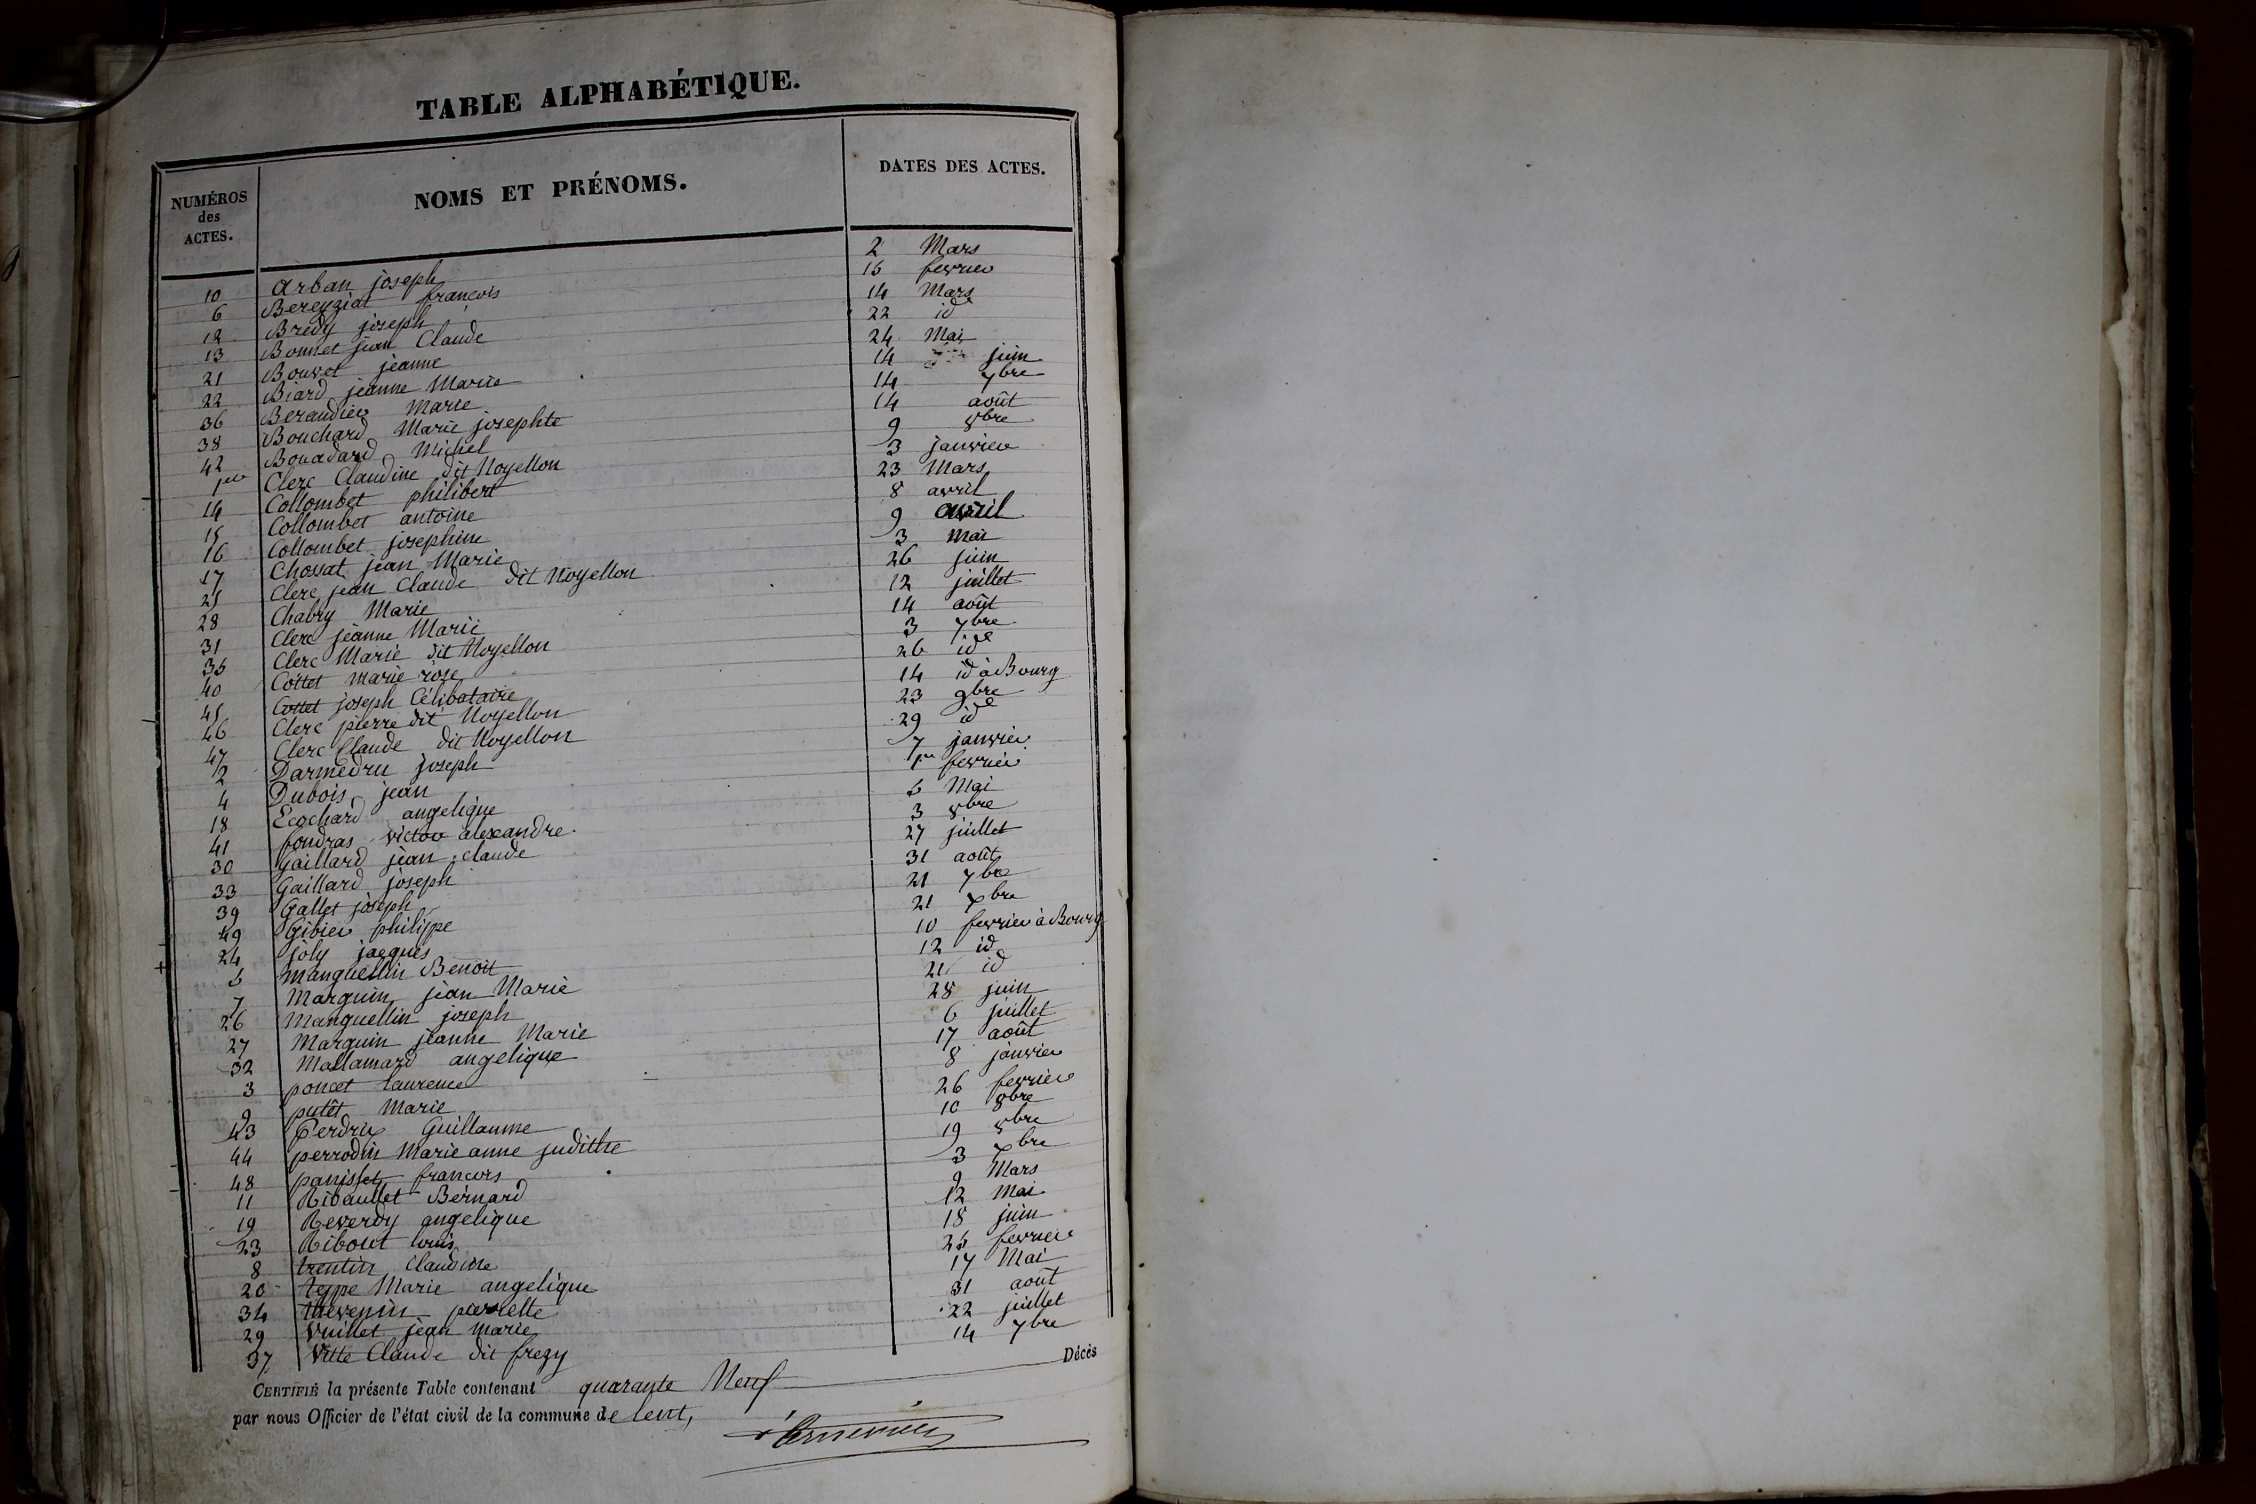 TABLE ALPHABÉTIQUE.
NUMÉROS des ACTES. NOMS ET PRÉNOMS. DATES DES ACTES.
10 arban joseph 2 Mars
6 Bereyziat françois 15 fevrier
12 Bredy joseph 14 Mars
13 Bonnet jean Claude 22 id
21 Bouvet jeanne 24 Mai
22 Biard jeanne Marie 14 juin
36 Beraudier Marie 14 7bre
38 Bouchard Marie josephte 14 août
42 Bouadard Michel 9 8bre
1er Clerc Claudine dit Noyellon 3 janvier
14 Collombet philibert 23 Mars
15 Collombet antoine 8 avril
16 Collombet josephine 9 avril
17 Chossat jean Marie 3 mai
25 Clerc jean Claude dit Noyellon 26 juin
28 Chabry Marie 12 juillet
31 Clerc jeanne Marie 14 août
35 Clerc Marie dit Noyellon 3 7bre
40 Cottet marie rose 26 id
45 Cottet joseph Célibataire 14 id à Bourg
46 Clerc pierre dit Noyellon 23 9bre
47 Clerc Claude dit Noyellon 29 id
2 Darmedru joseph 7 janvier
4 Dubois jean 1er fevrier
18 Ecochard angelique 5 Mai
41 fondras victor alexandre 3 8bre
30 gaillard jean claude 27 juillet
33 Gaillard joseph 31 août
39 Gallet joseph 21 7bre
49 Gibier philippe 21 Xbre
24 joly jacques 10 fevrier à Bourg
5 manguellin Benoit 12 id
7 Marguin jean Marie 21 id
26 Manguellin joseph 28 juin
27 Marguin jeanne Marie 6 juillet
32 Mallamard angelique 17 août
3 poncet laurence 8 janvier
9 putêt Marie 26 fevrier
43 Perdrix Guillaume 10 8bre
44 perrodin Marie anne judithe 19 8bre
48 panisset françois 3 Xbre
11 Ribaullet Bernard 9 Mars
19 Reverdy angelique 12 Mai
23 Ribout louis 18 juin
8 trentin Claudine 25 fevrier
20 teppe Marie angelique 17 Mai
34 thevenin pierrette 31 août
29 Vuillet jean marie 22 juillet
37 Vitte Claude dit frezy 14 7bre
CERTIFIÉ la présente Table contenant quarante Neuf Décès
par nous Officier de l'état civil de la commune de lent,